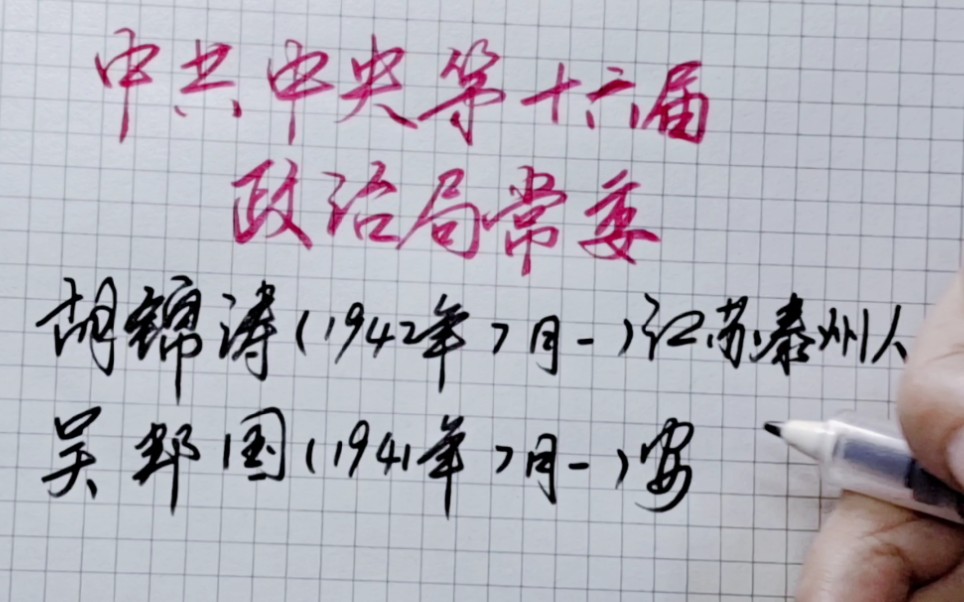 中共中央第十六届
政治局常委
胡锦涛(1942年7月-)江苏泰州人
吴邦国(1941年7月-)安